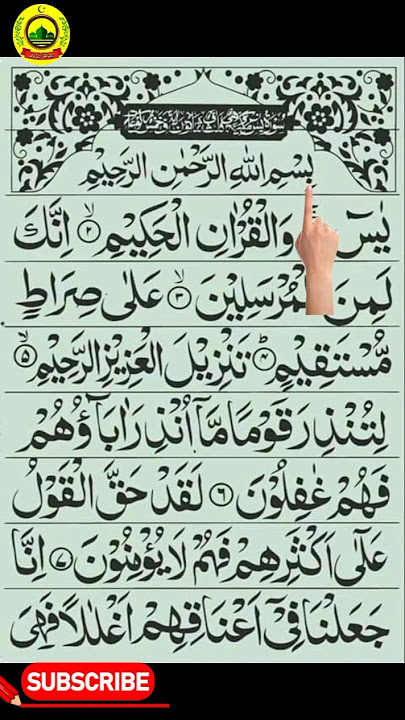 بِسْمِ اللهِ الرَّحْمٰنِ الرَّحِيْمِ
يٰسٓ وَالْقُرْاٰنِ الْحَكِيْمِ ۙ۲ اِنَّكَ
لَمِنَ الْمُرْسَلِيْنَ ۙ۳ عَلٰى صِرَاطٍ
مُّسْتَقِيْمٍ ؕ۴ تَنْزِيْلَ الْعَزِيْزِ الرَّحِيْمِ ۙ۵
لِتُنْذِرَ قَوْمًا مَّاۤ اُنْذِرَ اٰبَآؤُهُمْ
فَهُمْ غٰفِلُوْنَ ۶ لَقَدْ حَقَّ الْقَوْلُ
عَلٰۤى اَكْثَرِهِمْ فَهُمْ لَا يُؤْمِنُوْنَ ۷ اِنَّا
جَعَلْنَا فِيْۤ اَعْنَاقِهِمْ اَغْلٰلًا فَهِيَ
SUBSCRIBE